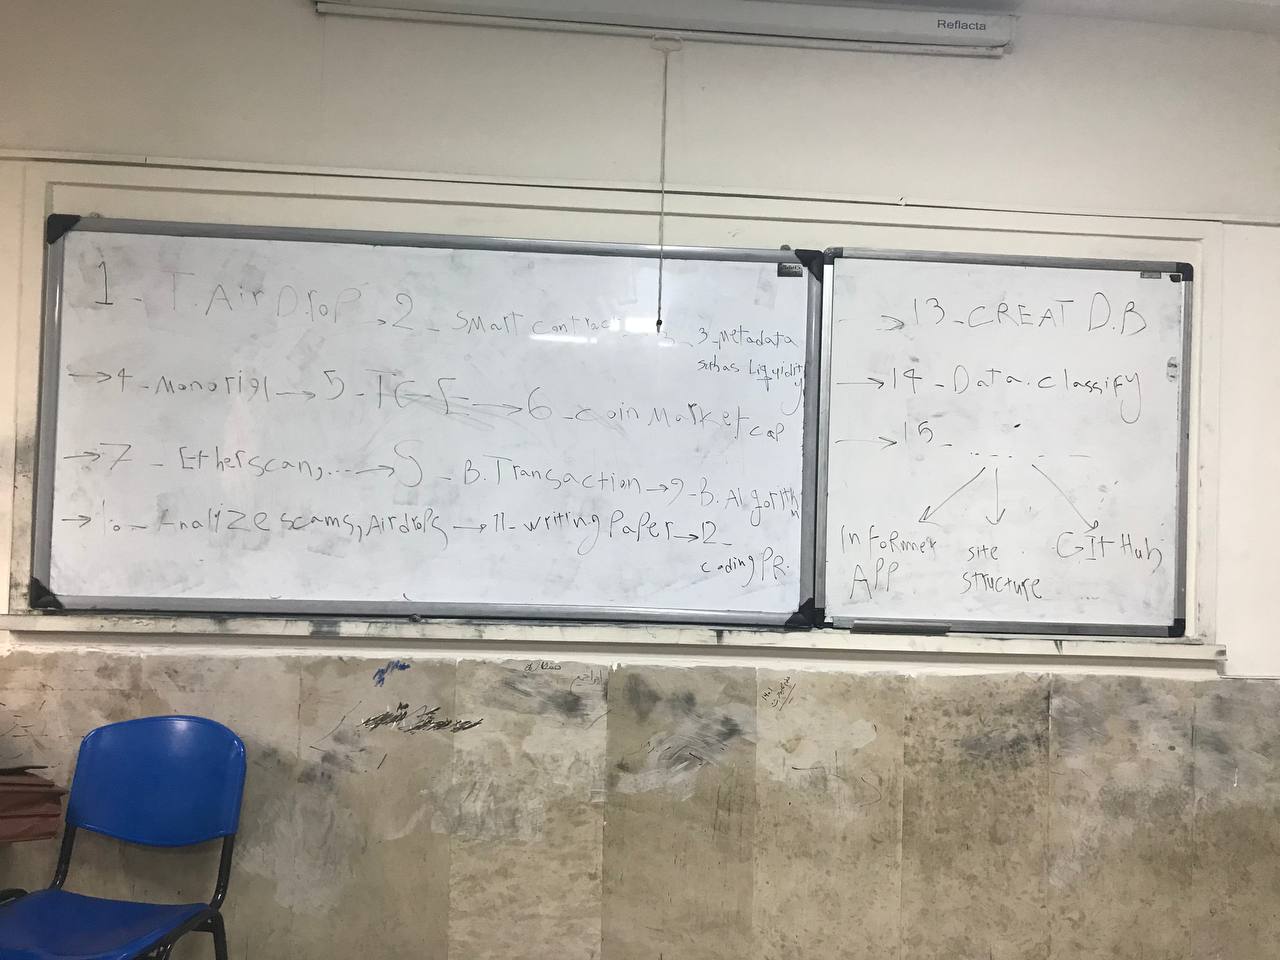 Reflacta
1 - T. AirDrop → 2 - smart contrac
3 - Metadata
suchas Liquidity
→ 4 - Monorigl → 5 - TGE → 6 - coin Market cap
→ 7 - Etherscan, ... → - B. Transaction → 9 - B. Algorithm
→ 10 - Analyze scams, Airdrops → 11 - writing Paper → 12 -
coding PR.
→ 13 - CREAT D.B
→ 14 - Data. classify
→ 15 - . . . .
InFormer APP
site structure
GIt Hub